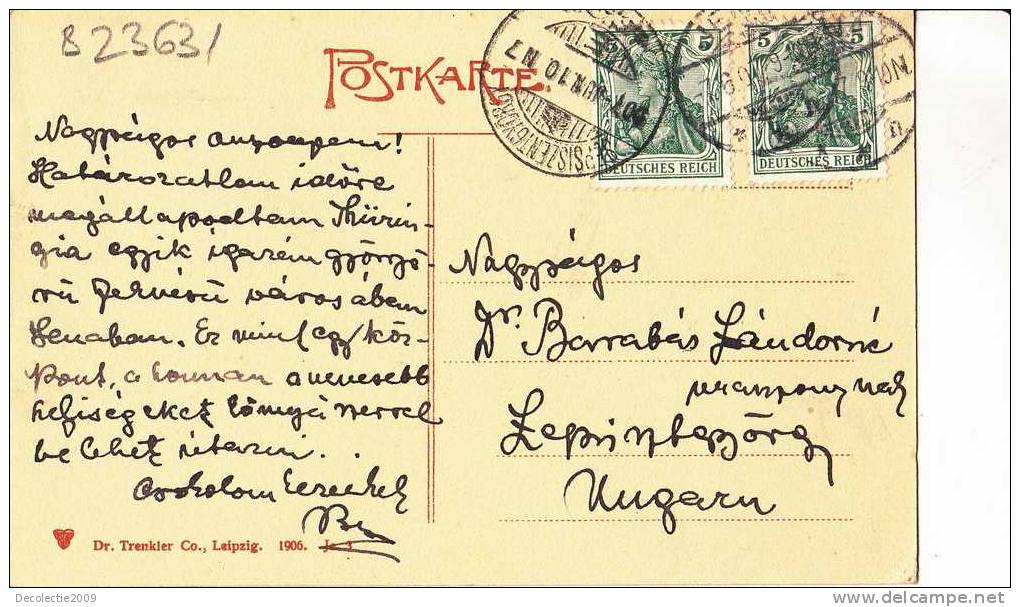 B 23631
POSTKARTE.
5 5
DEUTSCHES REICH
5 5
DEUTSCHES REICH
SEPSISZENTGYÖRGY
907 JUN. 10 N 7
Nagyságos asszonyom!
Határozatlan időre
megállapodtam Thürin-
gia egyik igazán gyönyö-
rű fekvésű városában
Jenában. Ez mint egy köz-
pont, a honnan a nevesebb
helységeket könnyű szerrel
be lehet utazni . .
Csókolom kezeiket
Nagyságos
Dr. Barrabás Sándorné
úrasszonynak
Sepsi sztgyörgy
Ungarn
Dr. Trenkler Co., Leipzig. 1906. J. 3
Decolectie2009
www.delcampe.net